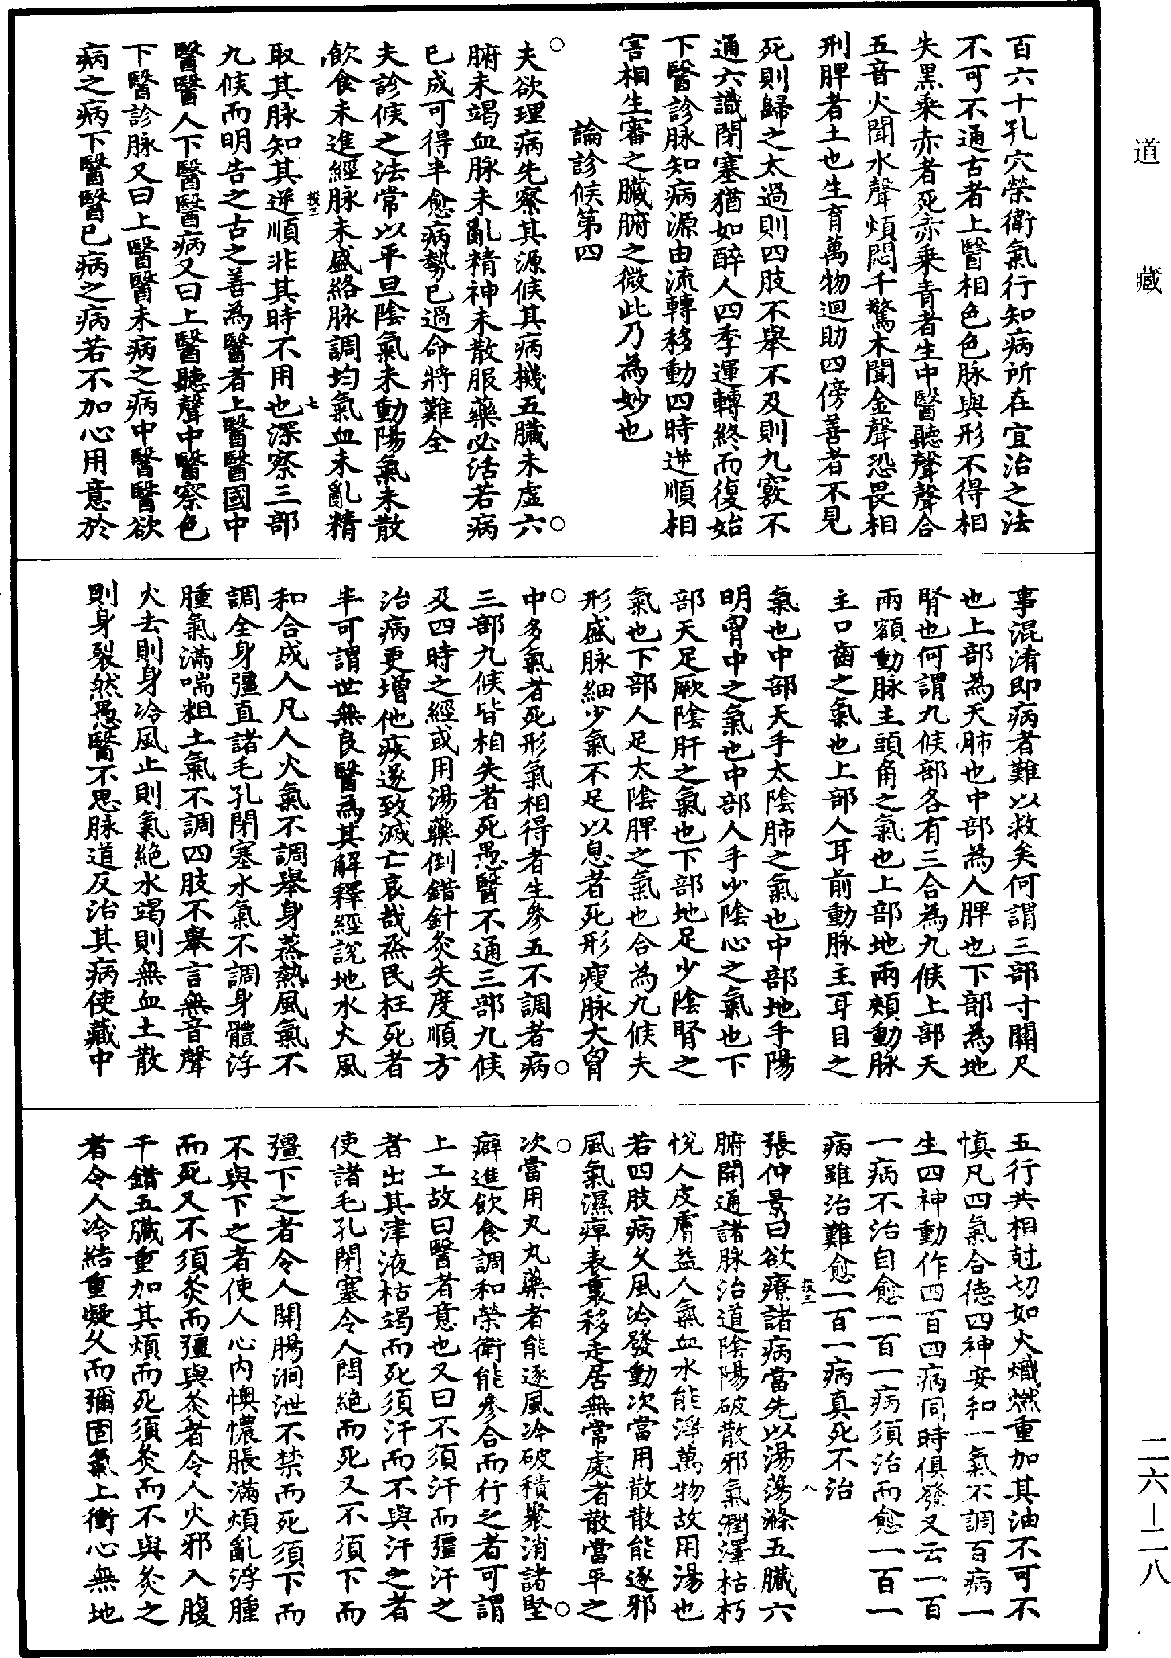 道藏
百六十孔穴榮衛氣行知病所在宜治之法
不可不通古者上醫相色色脉與形不得相
失黑乘赤者死赤乘青者生中醫聽聲聲合
五音火聞水聲煩悶千驚木聞金聲恐畏相
刑脾者土也生育萬物迴助四傍善者不見
死則歸之太過則四肢不舉不及則九竅不
通六識閉塞猶如醉人四季運轉終而復始
下醫診脉知病源由流轉移動四時逆順相
害相生審之臟腑之微此乃為妙也
論診候第四
夫欲理病先察其源候其病機五臟未虛六
腑未竭血脉未亂精神未散服藥必活若病
已成可得半愈病勢已過命將難全
夫診候之法常以平旦陰氣未動陽氣未散
飲食未進經脉未盛絡脉調均氣血未亂精
取其脉知其逆順非其時不用也深察三部
九候而明告之古之善為醫者上醫醫國中
醫醫人下醫醫病又曰上醫聽聲中醫察色
下醫診脉又曰上醫醫未病之病中醫醫欲
病之病下醫醫已病之病若不加心用意於
事混淆即病者難以救矣何謂三部寸關尺
也上部為天肺也中部為人脾也下部為地
腎也何謂九候部各有三合為九候上部天
兩額動脉主頭角之氣也上部地兩頰動脉
主口齒之氣也上部人耳前動脉主耳目之
氣也中部天手太陰肺之氣也中部地手陽
明胷中之氣也中部人手少陰心之氣也下
部天足厥陰肝之氣也下部地足少陰腎之
氣也下部人足太陰脾之氣也合為九候夫
形盛脉細少氣不足以息者死形瘦脉大胷
中多氣者死形氣相得者生參五不調者病
三部九候皆相失者死愚醫不通三部九候
及四時之經或用湯藥倒錯針灸失度順方
治病更增他疾遂致滅亡哀哉烝民枉死者
半可謂世無良醫為其解釋經說地水火風
和合成人凡人火氣不調舉身蒸熱風氣不
調全身彊直諸毛孔閉塞水氣不調身體浮
腫氣滿喘粗土氣不調四肢不舉言無音聲
火去則身冷風止則氣絕水竭則無血土散
則身裂然愚醫不思脉道反治其病使藏中
五行共相尅切如火熾燃重加其油不可不
慎凡四氣合德四神安和一氣不調百病一
生四神動作四百四病同時俱發又云一百
一病不治自愈一百一病須治而愈一百一
病雖治難愈一百一病真死不治
張仲景曰欲療諸病當先以湯蕩滌五臟六
腑開通諸脉治道陰陽破散邪氣潤澤枯朽
悅人皮膚益人氣血水能淨萬物故用湯也
若四肢病久風冷發動次當用散散能逐邪
風氣濕痺表裏移走居無常處者散當平之
次當用丸丸藥者能逐風冷破積聚消諸堅
癖進飲食調和榮衛能參合而行之者可謂
上工故曰醫者意也又曰不須汗而彊汗之
者出其津液枯竭而死須汗而不與汗之者
使諸毛孔閉塞令人悶絕而死又不須下而
彊下之者令人開腸洞泄不禁而死須下而
不與下之者使人心內懊憹脹滿煩亂浮腫
而死又不須灸而彊與灸者令人火邪入腹
干錯五臟重加其煩而死須灸而不與灸之
者令人冷結重凝久而彌固氣上衝心無地
二六—二八